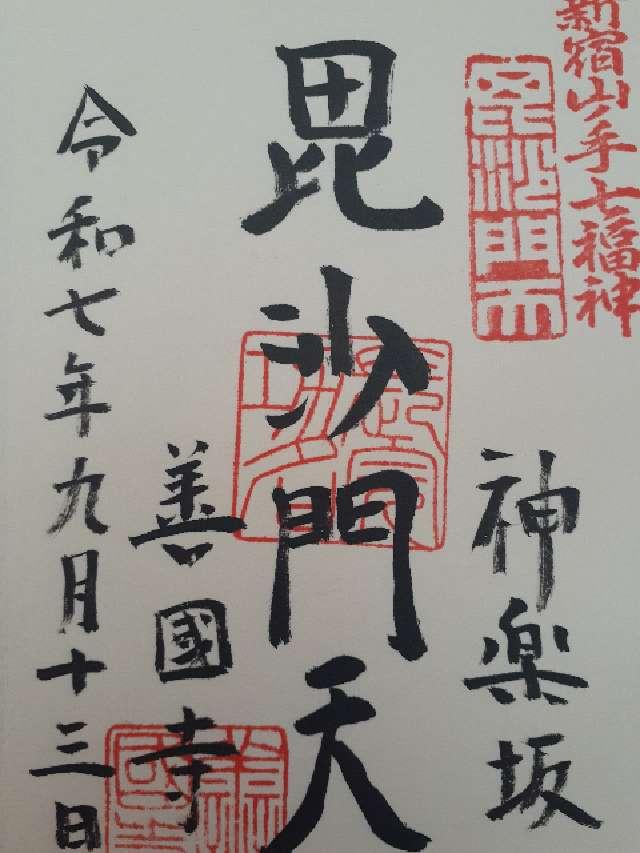 新宿山ノ手七福神
毘沙門天
神楽坂
毘沙門天
善國寺
令和七年九月十三日